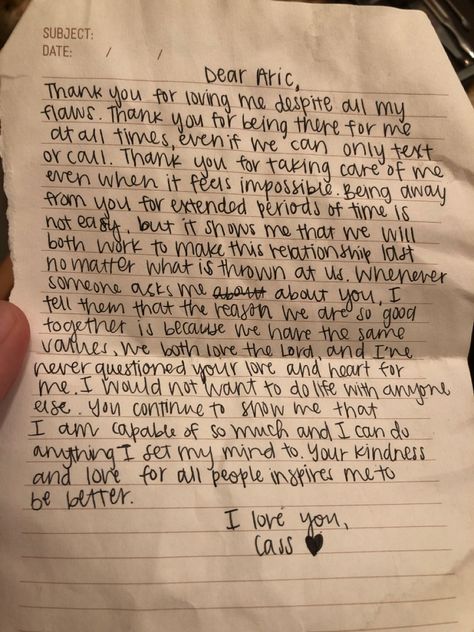 SUBJECT:
DATE: / /
Dear Aric,
Thank you for loving me despite all my
flaws. Thank you for being there for me
at all times, even if we can only text
or call. Thank you for taking care of me
even when it feels impossible. Being away
from you for extended periods of time is
not easy, but it shows me that we will
both work to make this relationship last
no matter what is thrown at us. Whenever
someone asks me about about you, I
tell them that the reason we are so good
together is because we have the same
values, we both love the Lord, and I've
never questioned your love and heart for
me. I would not want to do life with anyone
else. You continue to show me that
I am capable of so much and I can do
anything I set my mind to. Your kindness
and love for all people inspires me to
be better.
I love you,
Cass ♥